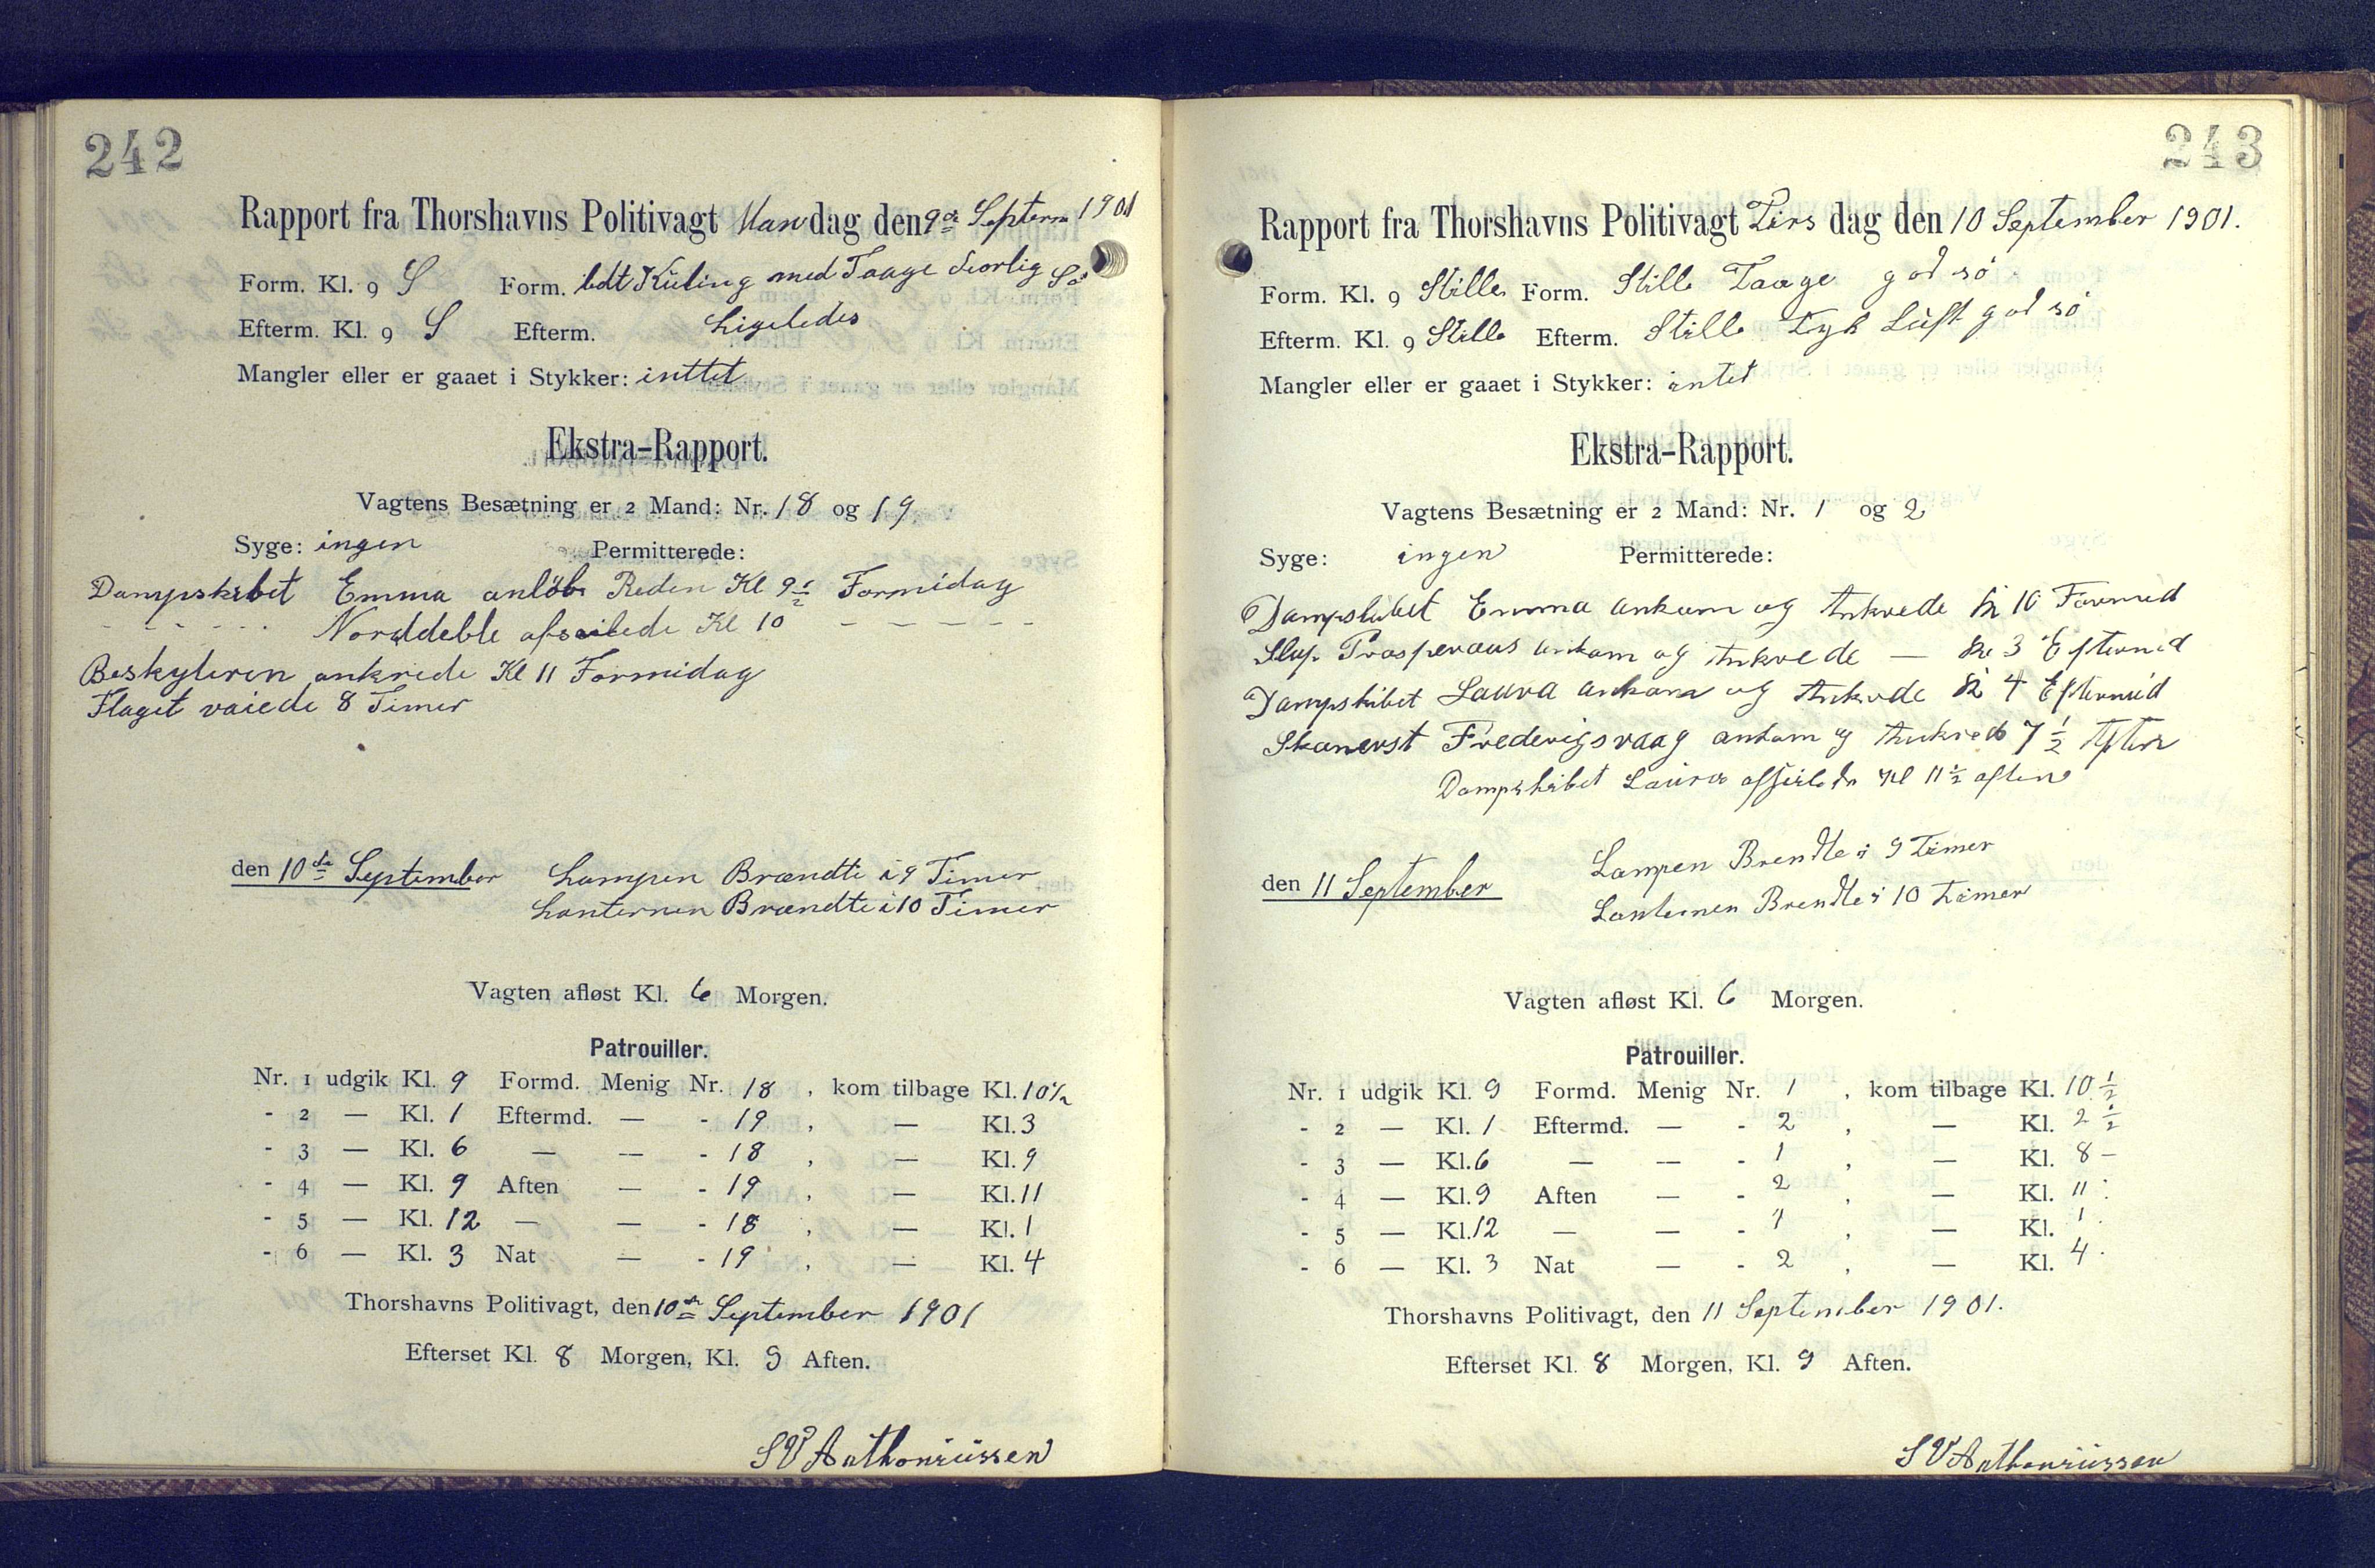 242
Rapport fra Thorshavns Politivagt Mandag den 9de Septem 1901
Form. Kl. 9 S Form. ledt Kuling med Taage Seorlig Sö
Efterm. Kl. 9 S Efterm. Ligeledes
Mangler eller er gaaet i Stykker: inttet
Ekstra-Rapport.
Vagtens Besætning er 2 Mand: Nr. 18 og 19
Syge: ingen Permitterede:
Dampskibet Emma anlöb Reden Kl 9½ Formidag
- - - - - Norddeble afseilede Kl 10 - - - - -
Beskyteren ankrede Kl 11 Formidag
Flaget vaiede 8 Timer
den 10de September Lampen Brændte i 9 Timer
Lanternen Brændte i 10 Timer
Vagten afløst Kl. 6 Morgen.
Patrouiller.
Nr. 1 udgik Kl. 9 Formd. Menig Nr. 18, kom tilbage Kl. 10½
- 2 — Kl. 1 Eftermd. — - 19, — Kl. 3
- 3 — Kl. 6 — — - 18, — Kl. 9
- 4 — Kl. 9 Aften — - 19, — Kl. 11
- 5 — Kl. 12 — — - 18, — Kl. 1
- 6 — Kl. 3 Nat — - 19, — Kl. 4
Thorshavns Politivagt, den 10de September 1901
Efterset Kl. 8 Morgen, Kl. 9 Aften.
SV Anthoniussen
243
Rapport fra Thorshavns Politivagt Tirsdag den 10 September 1901.
Form. Kl. 9 Stille Form. Stille Taage god sö
Efterm. Kl. 9 Stille Efterm. Stille Tyk Luft god sö
Mangler eller er gaaet i Stykker: intet
Ekstra-Rapport.
Vagtens Besætning er 2 Mand: Nr. 1 og 2
Syge: ingen Permitterede:
Dampskibet Emma ankom og Ankrede Kl 10 Formid
Slup Prosperaus ankom og Ankrede — Kl 3 Eftermid
Dampskibet Laura ankom og Ankrede Kl 4 Eftermid
Skonerst Frederigsvaag ankom og Ankred 7½ Efterm
Dampskibet Laura afseilede Kl 11½ aften
den 11 September Lampen Brendte i 9 Timer
Lanternen Brendte i 10 Timer
Vagten afløst Kl. 6 Morgen.
Patrouiller.
Nr. 1 udgik Kl. 9 Formd. Menig Nr. 1, kom tilbage Kl. 10½
- 2 — Kl. 1 Eftermd. — - 2, — Kl. 2½
- 3 — Kl. 6 — — - 1, — Kl. 8 –
- 4 — Kl. 9 Aften — - 2, — Kl. 11
- 5 — Kl. 12 — — - 1, — Kl. 1
- 6 — Kl. 3 Nat — - 2, — Kl. 4
Thorshavns Politivagt, den 11 September 1901.
Efterset Kl. 8 Morgen, Kl. 9 Aften.
SV Anthoniussen